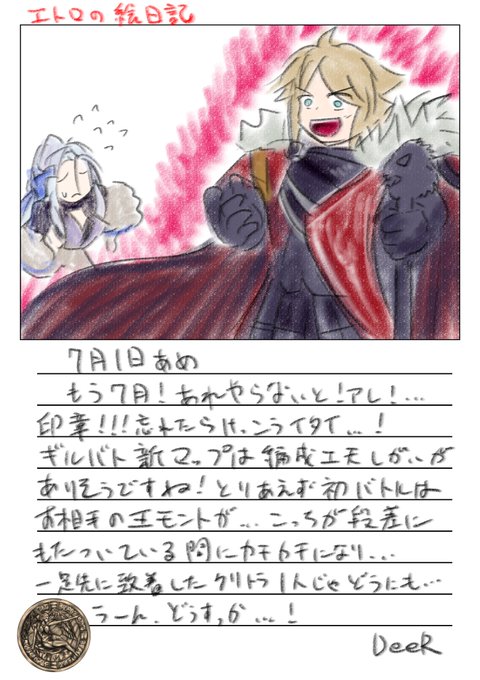 エトロの絵日記
7月1日あめ
もう7月！あれやらないと！アレ！...
印章！！！忘れたらけっこうイタイ...！
ギルバト新マップは編成工夫しがいが
ありそうですね！とりあえず初バトルは
お相手の王モントが...こっちが段差に
もたついている間にカチカチになり...
一足先に致着したクリトラ1人じゃどうにも...
うーん、どうすっか...！
DeeR